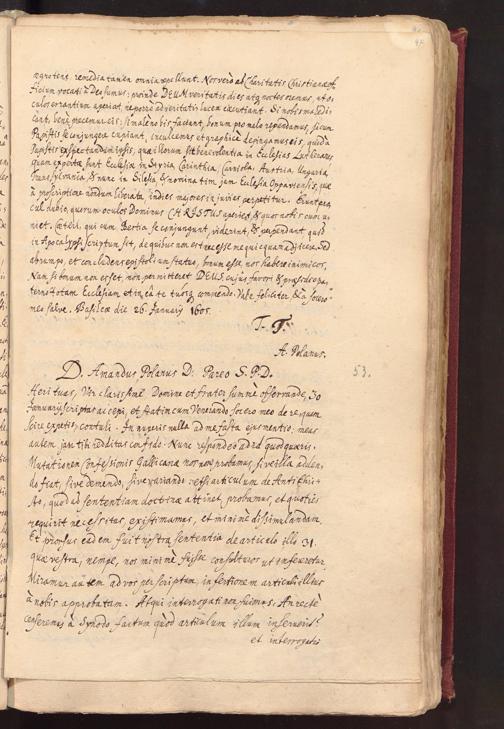 ægrotent, remedia tamen omnia repellunt. Nos vero ad Charitatis Christianæ of-
ficium vocati à Deo sumus: proinde DEUM veritatis dies atq noctes oremus, ut o-
culos errantium aperiat, ne porrò ad veritatis lucem cæcutiant. Si nobis maledi-
cant, benè precemur eis: si malè nobis faciant, bonum pro malo rependamus, si cum
Papistis se conjungere cupiant, inculcemus et graphicè depingamus eis, quid à
Papistis exspectandum ipsis, quæ illorum sit benevolentia in Ecclesias Lutheranas,
quam expertæ sunt Ecclesiæ in Styria, Carinthia, Carniola, Austria, Ungaria,
Transylvania & nunc in Silesia & novissimè jam Ecclesia Oppaviensis, quæ
à proscriptione nondum liberata, indies majores injurias perpetitur.
cul dubio, quorum oculos Dominus CHRISTUS aperiet, & quos nobis
niet. Cæteri, qui cum Bestia se conjungunt, viderint, & perpendant quid
in Apocalypsi scriptum sit, de quibus non est necesse me quicquam adjicere. Sed
abrumpo, et concludens epistolium statuo, bonum esse nos habere inimicos,
Nam si bonum non esset, non permitteret DEUS, cujus favori & præsidio pa-
terno totam Ecclesiam et in eâ te tuosq commendo. Vale feliciter, & à socero
meo salve. Basileæ die 26. Januarij 1605.
T. T.
A. Polanus.
53.
D. Amandus Polanus D. Pareo S. P. D.
Heri tuas, Vir clarissime Domine et frater summè observande, 30
Januarij scriptas accepi, et statim cum Venerando socero meo de re quam
scire expetis, contuli. In nuperis nulla
autem jam tibi redditas confido. Nunc respondeo ad id quod quæris.
Mutationem Confessionis Gallicanæ nos non probamus, sive illa adden-
do fiat, sive demendo, sive variando: etsi articulum de Antichri-
sto, quod ad sententiam doctrinæ attinet, probamus, et quoties
requirit necessitas, existimamus, et minimè dissimulandam.
Et prorsus eadem fuit nostra sententia de articulo illo 31.
quæ vestra, nempe, nos minimè fuisse consulturos ut insereretur.
Miramur autem ad vos perscriptum, insertionem articuli illius
à nobis approbatam. Atqui interrogati non fuimus. An rectè
censeremus à Synodo factum quod articulum illum inseruerit?
et interrogatis